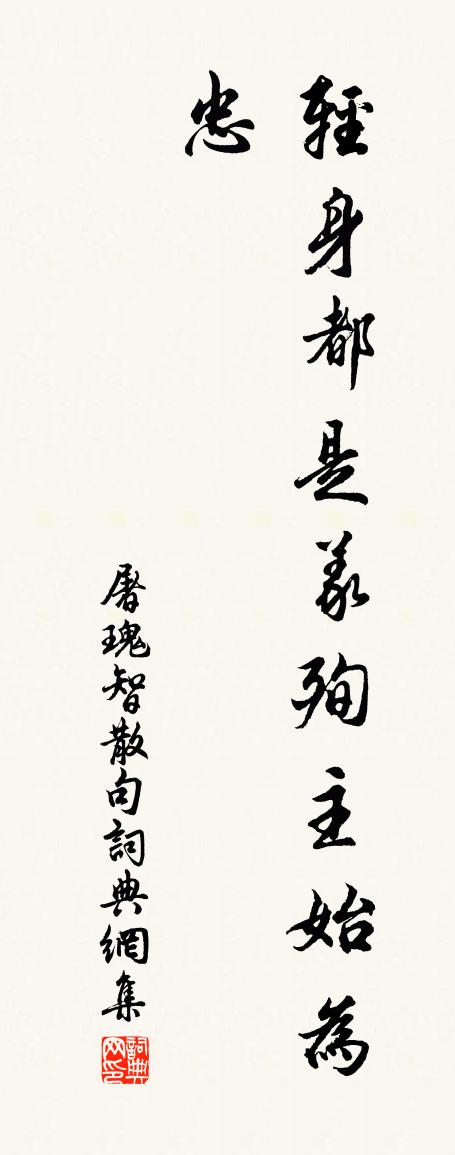 輕身都是義殉主始為
忠
屠瑰智散句詞典網集
詞典网印